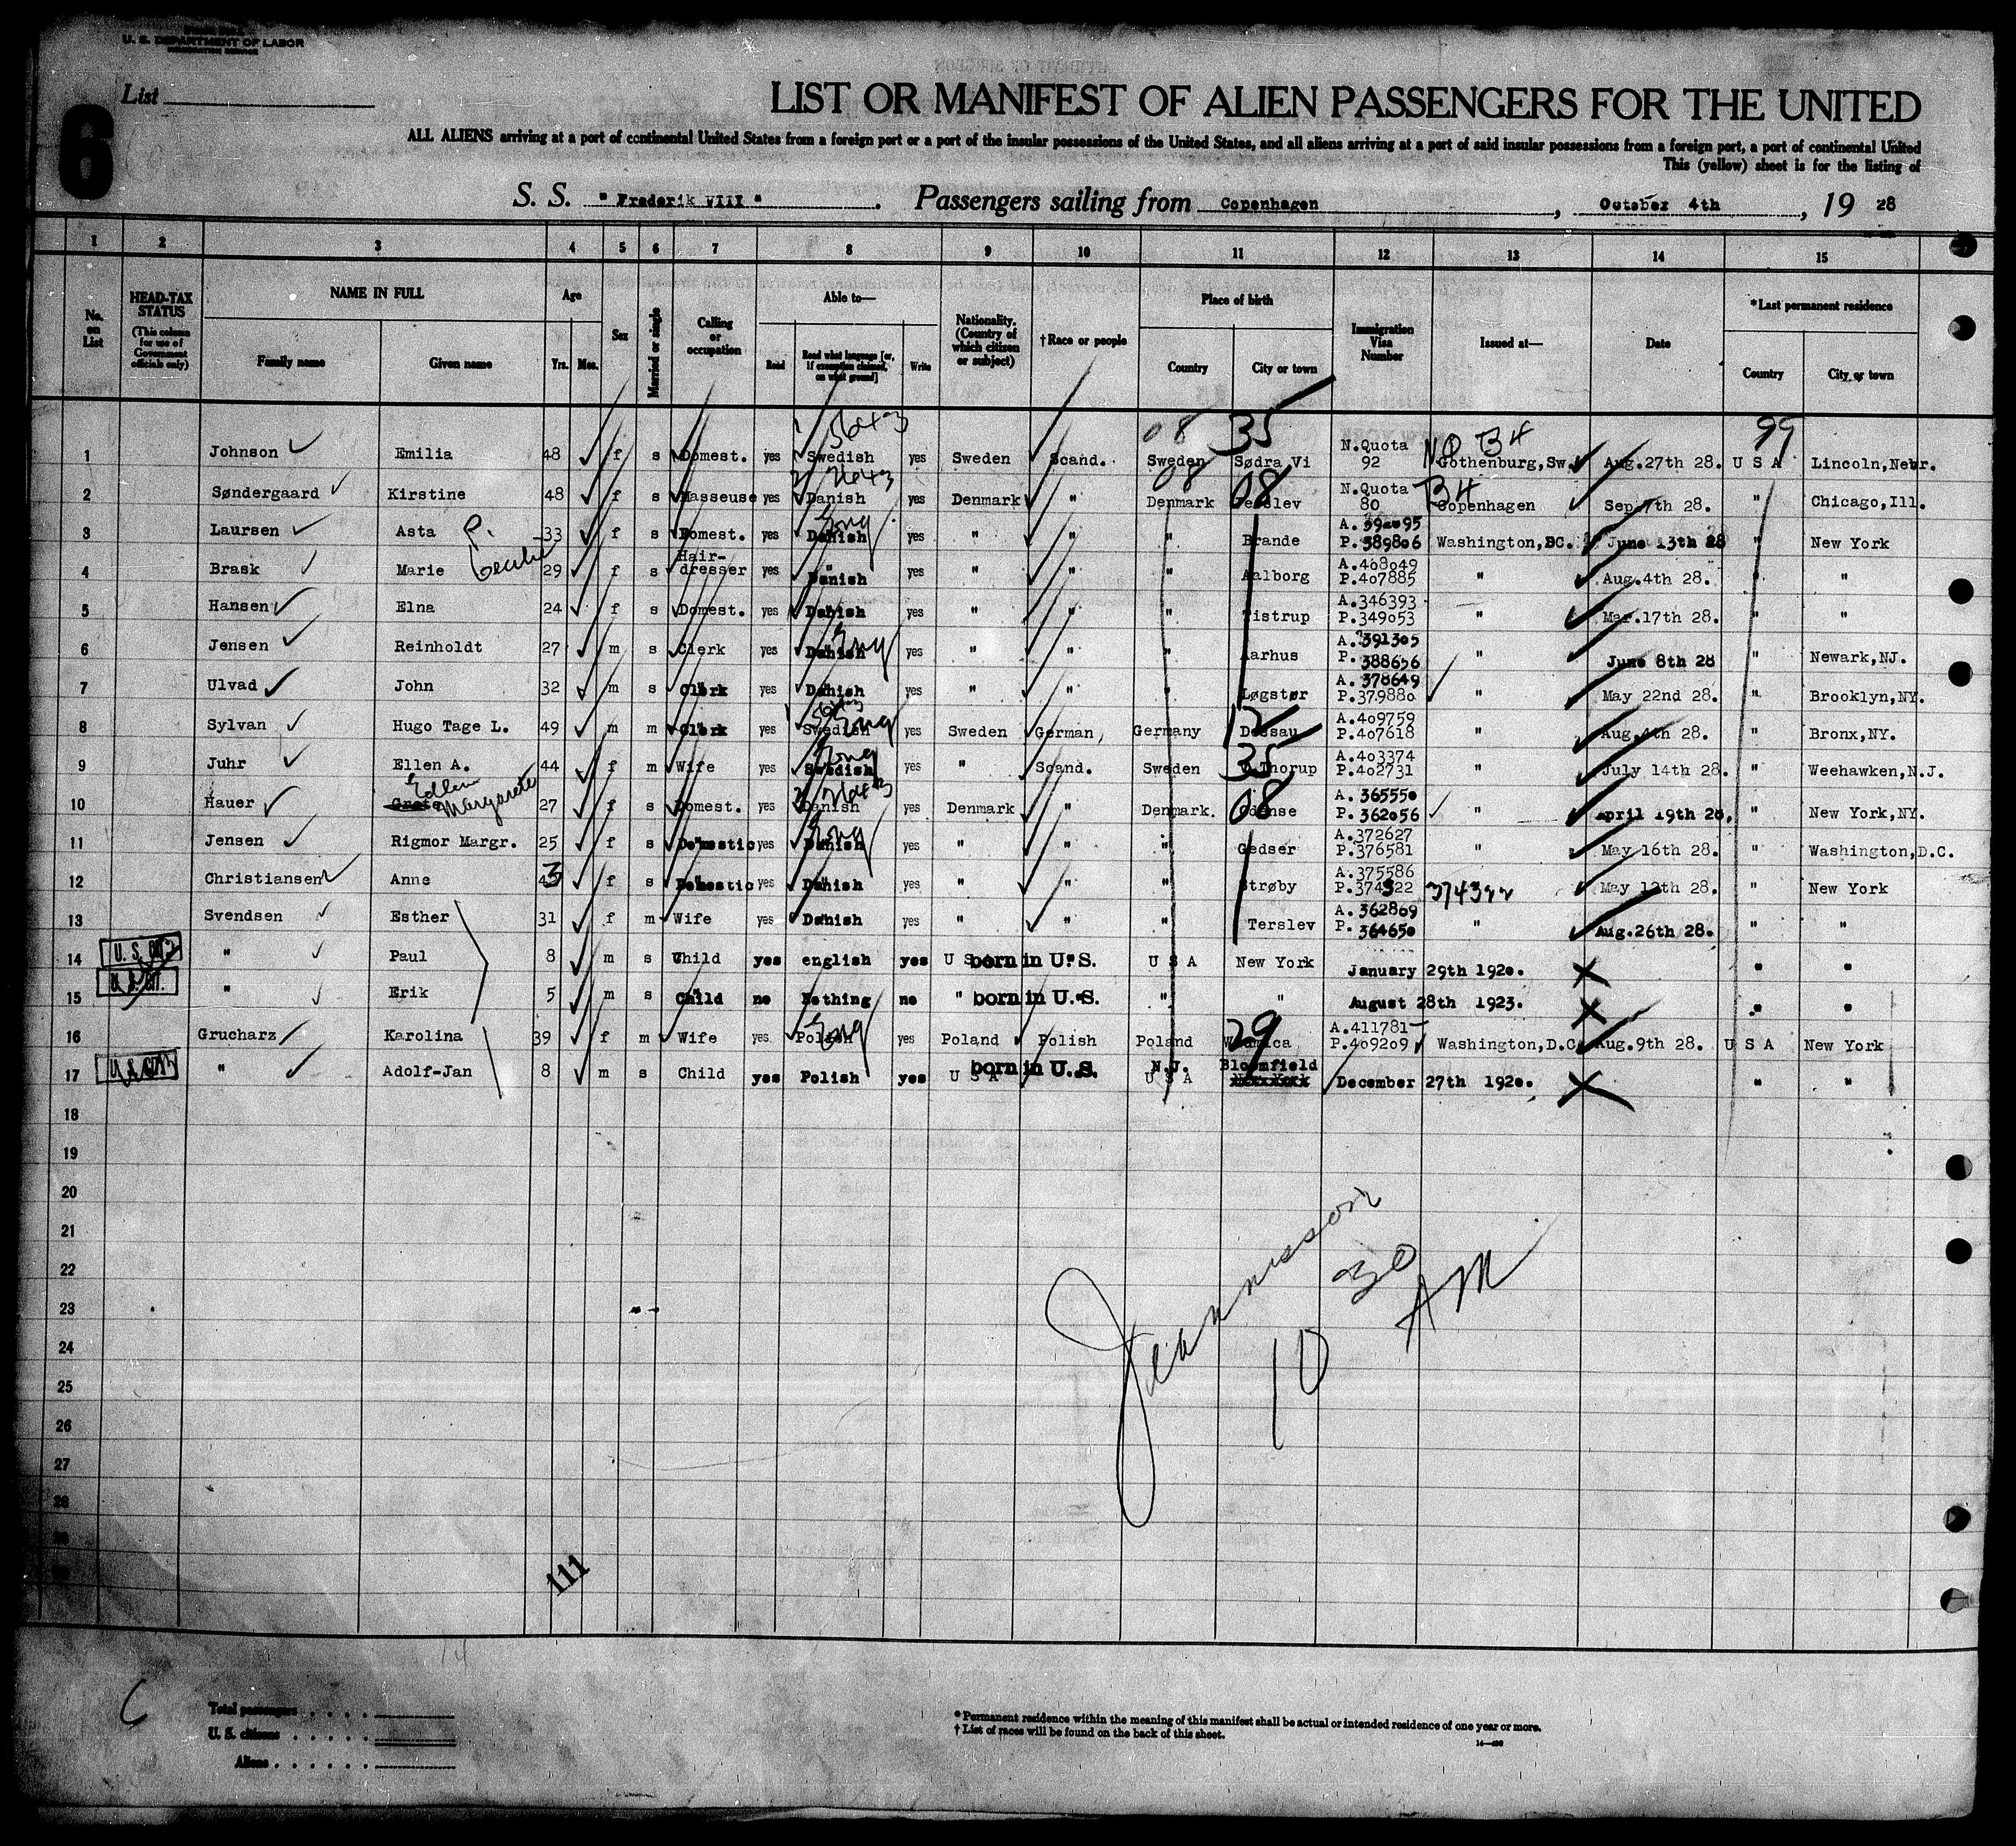 U. S. DEPARTMENT OF LABOR
List
6
LIST OR MANIFEST OF ALIEN PASSENGERS FOR THE UNITED
ALL ALIENS arriving at a port of continental United States from a foreign port or a port of the insular possessions of the United States, and all aliens arriving at a port of said insular possessions from a foreign port, a port of continental United
This (yellow) sheet is for the listing of
S. S. "Frederik VIII". Passengers sailing from Copenhagen, October 4th, 19 28
1 2 3 4 5 6 7 8 9 10 11 12 13 14 15
No. on List
HEAD-TAX STATUS (This column for use of Government officials only)
NAME IN FULL Family name Given name
Age Yrs. Mos.
Sex
Married or single
Calling or occupation
Able to— Read Read what language [or, if exemption claimed, on what ground] Write
Nationality. (Country of which citizen or subject)
†Race or people
Place of birth Country City or town
Immigration Visa Number
Issued at—
Date
*Last permanent residence Country City or town
08 35 NQ B4 99
1 Johnson Emilia 48 f s Domest. yes Swedish yes Sweden Scand. Sweden Sødra Vi N.Quota 92 Gothenburg,Sw. Aug.27th 28. U S A Lincoln,Nebr.
08 08 B4
2 Søndergaard Kirstine 48 f s Masseuse yes Danish yes Denmark " Denmark N.Quota 80 Copenhagen Sep.7th 28. " Chicago,Ill.
3 Laursen Asta P. 33 f s Domest. yes Danish Eng yes " " " Brande P.389806 Washington,DC. June 13th 28 " New York
4 Brask Marie Cecilie 29 f s Hair-dresser yes Danish yes " " " Aalborg A.408049 P.407885 " Aug.4th 28. " "
5 Hansen Elna 24 f s Domest. yes Danish yes " " " Tistrup A.346393 P.349053 " Mar.17th 28. " "
6 Jensen Reinholdt 27 m s Clerk yes Danish Eng yes " " " Aarhus A.391305 P.388656 " June 8th 28 " Newark,NJ.
7 Ulvad John 32 m s Clerk yes Danish yes " " " Løgstør A.378649 P.379880 " May 22nd 28. " Brooklyn,NY.
8 Sylvan Hugo Tage L. 49 m m Clerk yes Swedish Eng yes Sweden German, Germany Dessau A.409759 P.407618 " Aug.4th 28. " Bronx,NY.
9 Juhr Ellen A. 44 f m Wife yes Swedish Eng yes " Scand. Sweden 35 Thorup A.403374 P.402731 " July 14th 28. " Weehawken,N.J.
10 Hauer Margarete 27 f s Domest. yes Danish yes Denmark " Denmark. 08 Odense A.365550 P.362056 " April 19th 28, " New York,NY.
11 Jensen Rigmor Margr. 25 f s Domestic yes Danish Eng yes " " " Gedser A.372627 P.376581 " May 16th 28. " Washington,D.C.
12 Christiansen Anne f s Domestic yes Danish yes " " " Strøby A.375586 P.374322 374322 " May 12th 28. " New York
13 Svendsen Esther 31 f m Wife yes Danish yes " " " Terslev A.362869 P.364650 " Aug.26th 28. " "
14 U. S. CIT. " Paul 8 m s Child yes english yes U S A born in U.S. U S A New York January 29th 1920. " "
15 U. S. CIT. " Erik 5 m s Child no Nothing no " born in U.S. " " August 28th 1923. " "
16 Grucharz Karolina 39 f m Wife yes Polish Eng yes Poland Polish Poland 29 A.411781 P.409209 Washington,D.C. Aug.9th 28. U S A New York
17 U. S. CIT. " Adolf-Jan 8 m s Child yes Polish yes U S A born in U.S. N.J. U S A Bloomfield December 27th 1920. " "
18
19
20
21
22
23
24
25
26
27
28
10 30 AM
111
C
Total passengers
U. S. citizens
Aliens
*Permanent residence within the meaning of this manifest shall be actual or intended residence of one year or more.
†List of races will be found on the back of this sheet.